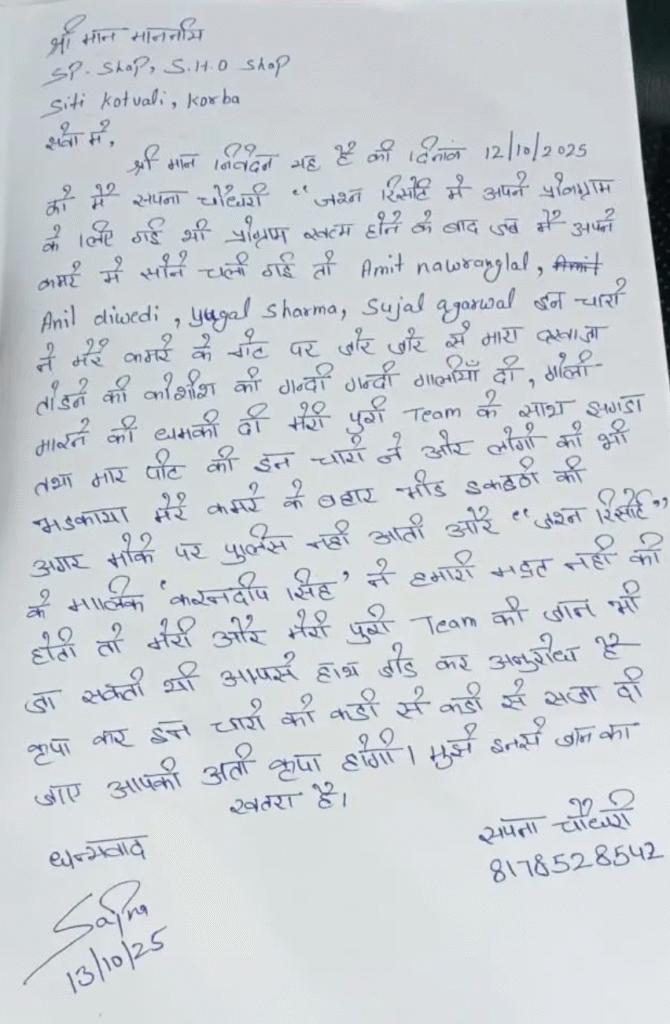 श्री मान माननीय
SP. Shap, S.H.O Shap
Siti Kotvali, Korba
सेवा में,
श्री मान निवेदन यह है की दिनांक 12/10/2025
को मैं सपना चौधरी "जश्न रिसोर्ट में अपने प्रोग्राम
के लिए गई थी प्रोग्राम खत्म होने के बाद जब मैं अपने
कमरे में सोने चली गई तो Amit nawranglal,
Anil diwedi, yugal Sharma, Sujal agarwal इन चारो
ने मेरे कमरे के गेट पर जोर जोर से मारा दरवाजा
तोडने की कोशीश की गन्दी गन्दी गालीयाँ दी, गोली
मारने की धमकी दी मेरी पुरी Team के साथ झगडा
तथा मार पीट की इन चारो ने ओर लोगो को भी
भडकाया मेरे कमरे के बहार भीड इकहठी की
अगर मोके पर पुलिस नही आती ओर "जश्न रिसोर्ट"
के मालिक 'करनदीप सिंह' ने हमारी मदत नही की
होती तो मेरी और मेरी पुरी Team की जान भी
जा सकती थी आपसे हाथ जोड कर अनुरोध है
कृपा कर इन चारो को कडी से कडी से सजा दी
जाए आपकी अती कृपा होगी। मुझे इनसे जान का
खतरा है।
धन्यवाद
सपना चौधरी
8178528542
Sapna
13/10/25